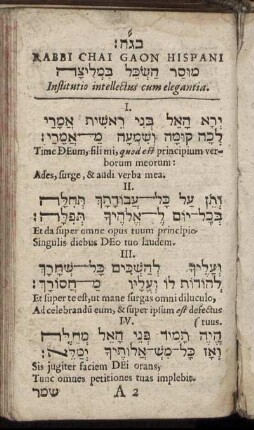 בגה׃
RABBI CHAI GAON HISPANI
מוסר השכל במליצה
Institutio intellectus cum elegantia.
I.
ירא האל בני ראשית אמרי
לכה קומה ושמעה מ אמרי׃
Time DEum, fili mi, quod est principium ver-
borum meorum:
Ades, surge, & audi verba mea.
II.
ותן על כל עבודתך תחלה
בכל יום ל אלהיך תפלה׃
Et da super omne opus tuum principio
Singulis diebus DEo tuo laudem.
III.
ועליך להשכים כל שחרך
להודות לו ועליו מ חסורך׃
Et super te est, ut mane surgas omni diluculo,
Ad celebrandū eum, & super ipsum est defectus
IV. (tuus.
היה תמיד פני האל מחלה
ואז כל מש אלותיך ימלא׃
Sis jugiter faciem DEi orans,
Tunc omnes petitiones tuas implebit.
A 2 שמר